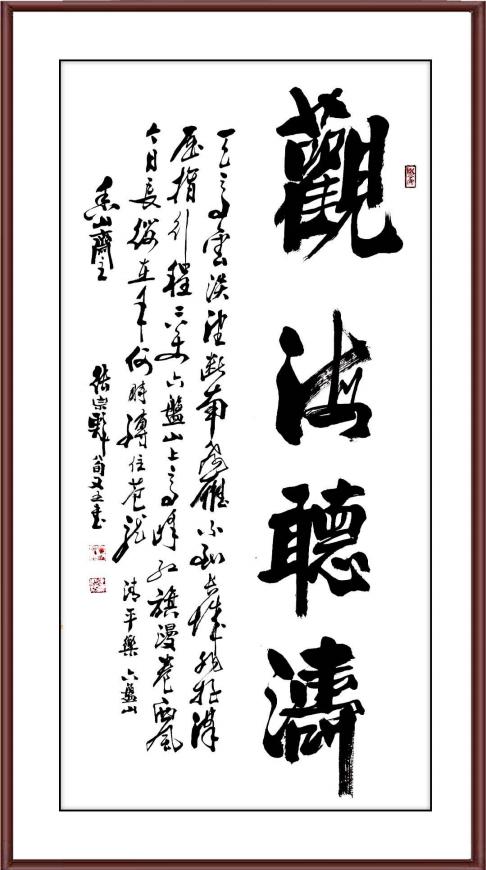 觀海聽濤
天高雲淡望斷南飛雁不到長城非好漢
屈指行程二萬六盤山上高峰紅旗漫卷西風
今日長纓在手何時縛住蒼龍 清平樂 六盤山
香山齋主